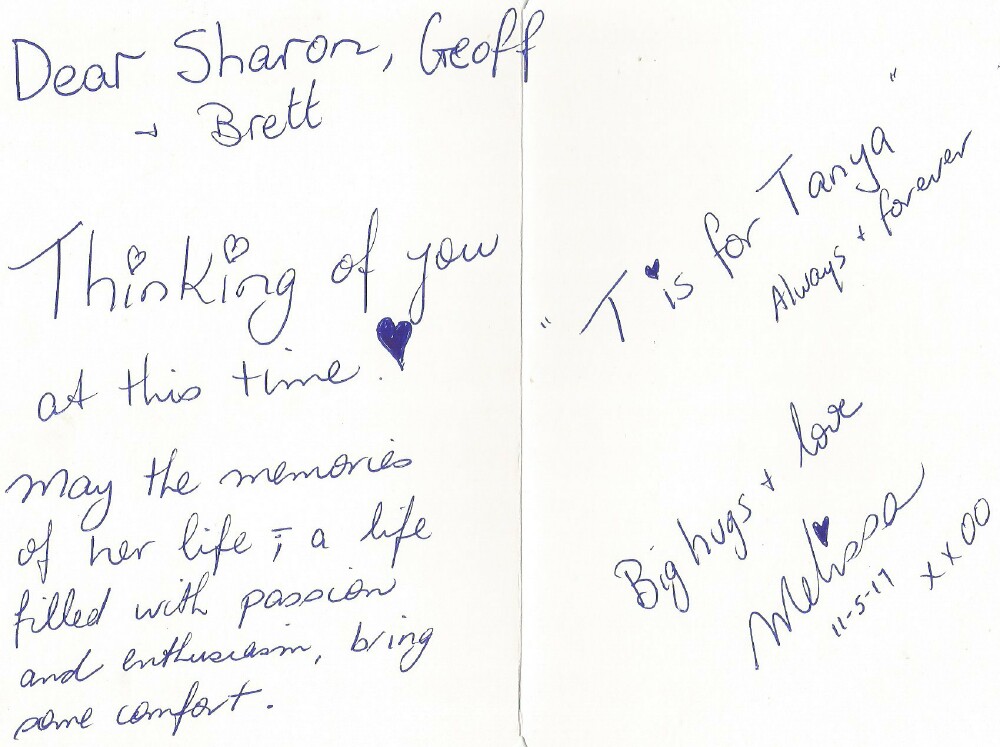 Dear Sharon, Geoff
+ Brett
Thinking of you
at this time.
May the memories
of her life ; a life
filled with passion
and enthusiasm, bring
some comfort.
"T is for Tanya"
Always + forever
Big hugs + love
Melissa
11-5-17 xxOO